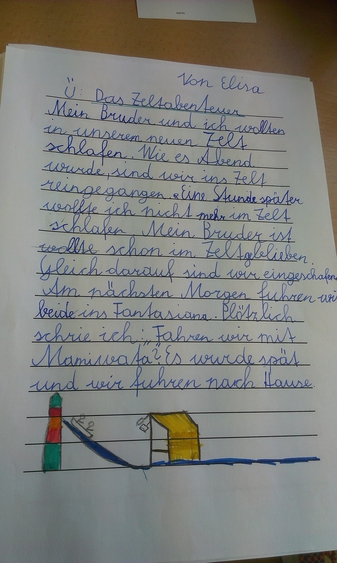 Von Elisa
Ü: Das Zeltabenteuer
Mein Bruder und ich wollten
in unserem neuen Zelt
schlafen. Wie es Abend
wurde, sind wir ins Zelt
reingegangen. Eine Stunde später
wollte ich nicht mehr im Zelt
schlafen. Mein Bruder ist
wollte schon im Zelt geblieben.
Gleich darauf sind wir eingeschafen
Am nächsten Morgen fuhren wir
beide ins Fantasiana. Plötzlich
schrie ich: „Fahren wir mit
Mamiwata?" Es wurde spät
und wir fuhren nach Hause